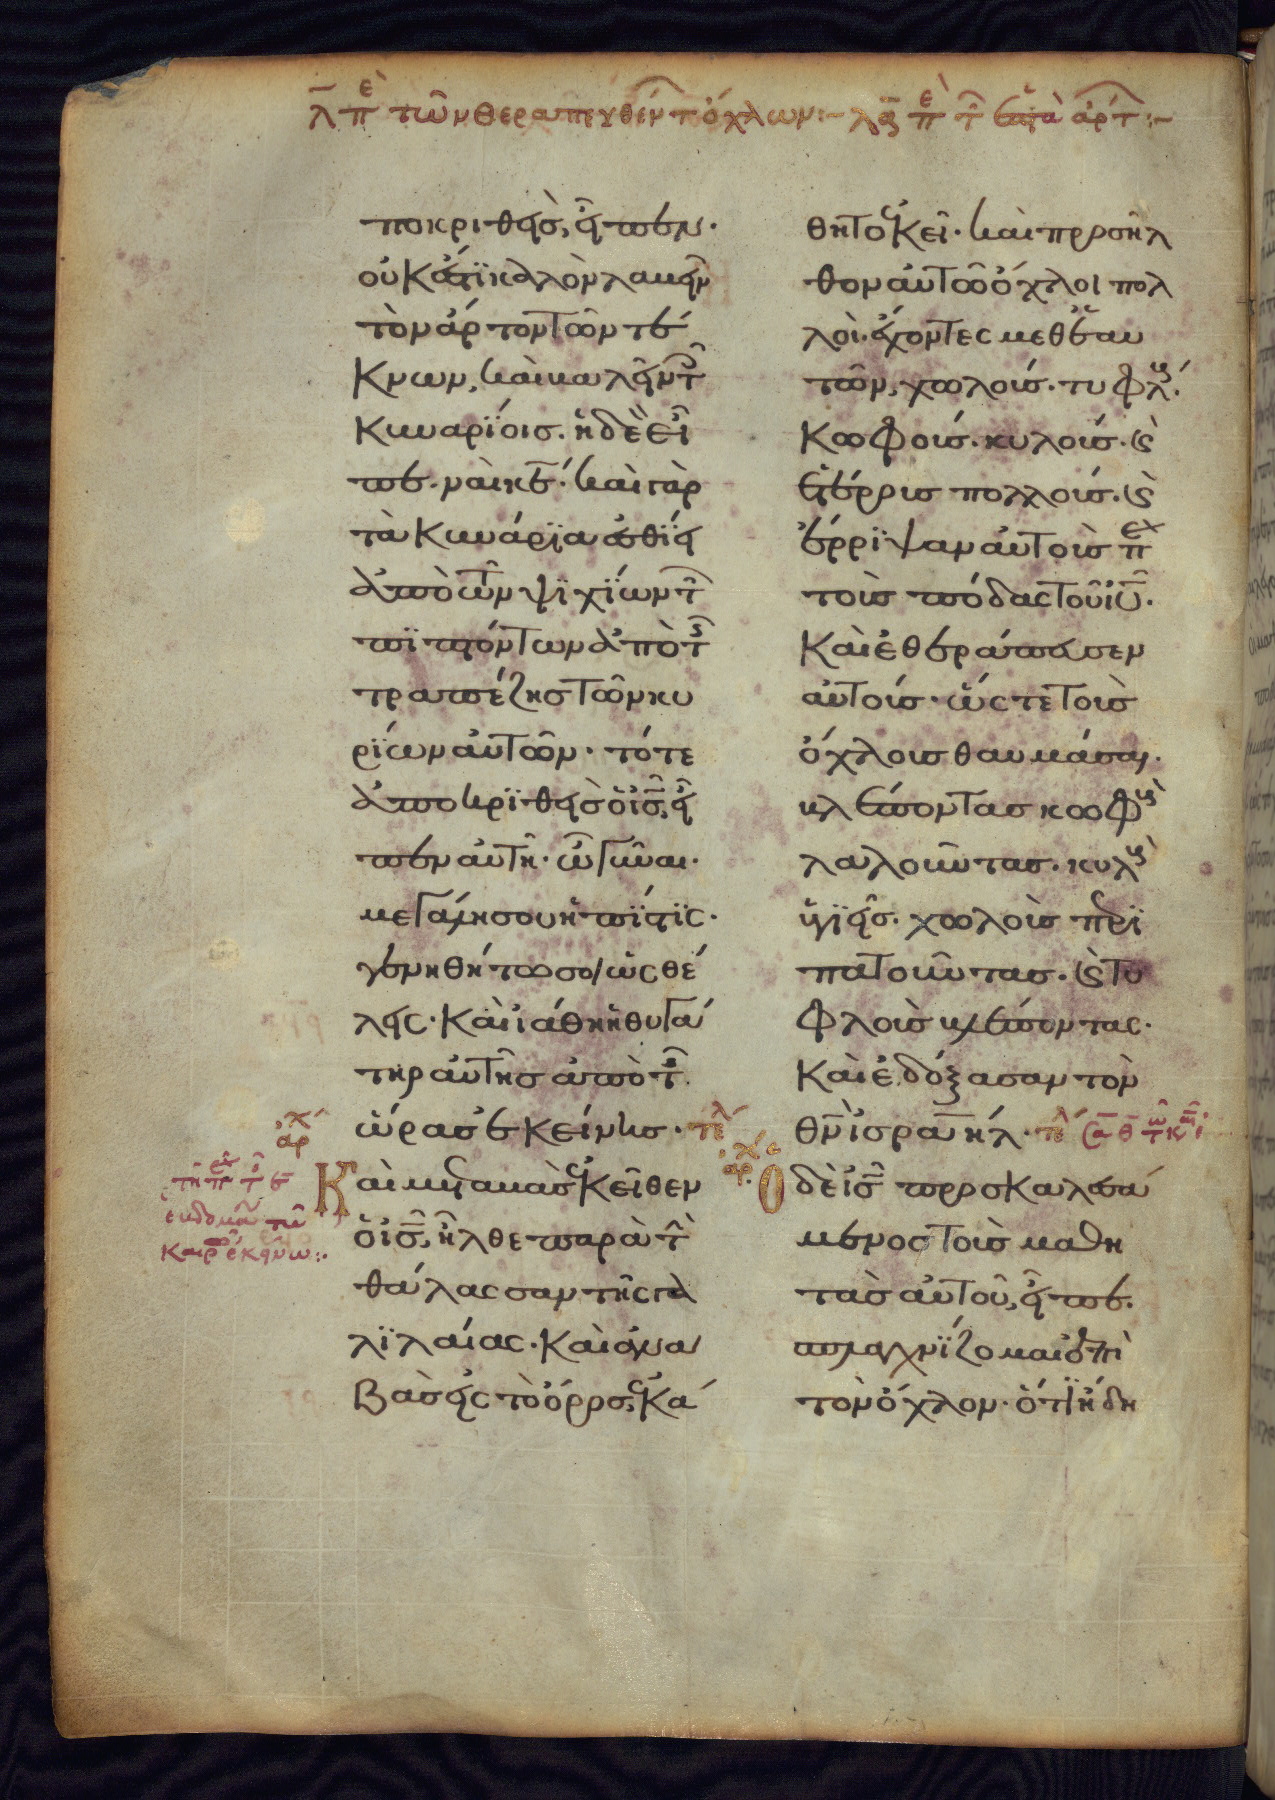 λ πε τῶν θεραπευθέντ ὄχλων:~ λα πε τ ἑπτὰ ἄρτ:~
ποκριθεὶς, εἶπεν·
οὐκ ἔστι καλὸν λαβεῖν
τὸν ἄρτον τῶν τέ
κνων, καὶ βαλεῖν τ
κυναρίοις. ἡ δὲ εἶ
πεν. ναὶ κε΄. καὶ γὰρ
τὰ κυνάρϊα ἐσθίει
ἀπὸ τῶν ψϊχϊων τ
πϊπτόντων ἀπὸ τ
τραπέζης τῶν κυ
ρϊων αὐτῶν· τότε
ἀποκρϊθεὶς ὁ ις, εἶ
πεν αὐτῆ· ὦ γύναι.
μεγάλη σου ἡ πίστϊς.
γενηθήτω σοι ὡς θέ
λεις. καὶ ἰάθη ἡ θυγά
τηρ αὐτῆς ἀπὸ τ
ὥρας ἐκείνης. τε
Καὶ μεταβὰς ἐκεῖθεν
ὁ ις, ἦλθε παρὰ τ
θάλασσαν τῆς γα
λϊλαίας. καὶ ἀνα
βὰς εἰς τὸ ὄρος, ἐκά
θητο ἐκεῖ. καὶ προσῆλ
θον αὐτῶ ὄχλοι πολ
λοὶ. ἔχοντες μεθ ἑαυ
τῶν, χωλούς. τυφλ.
κωφούς. κυλούς. κ
ἑτέρους πολλούς. κ
ἔρριψαν αὐτοὺς π
τοὺς πόδας τοῦ ιυ.
καὶ ἐθεράπευσεν
αὐτούς. ὥστε τοὺς
ὄχλους θαυμάσαι.
βλέποντας κωφ
λαλοῦντας. κυλ
ὑγϊεῖς. χωλοὺς περϊ
πατοῦντας. κ τυ
φλοὺς βλέποντας.
καὶ ἐδόξασαν τὸν
θν ἰσραήλ. τε
Ὁ δὲ ις προσκαλεσά
μενος τοὺς μαθη
τὰς αὐτοῦ, εἶπε.
σπλαγχνϊζομαι ἐπὶ
τὸν ὄχλον. ὅτι ἤδη